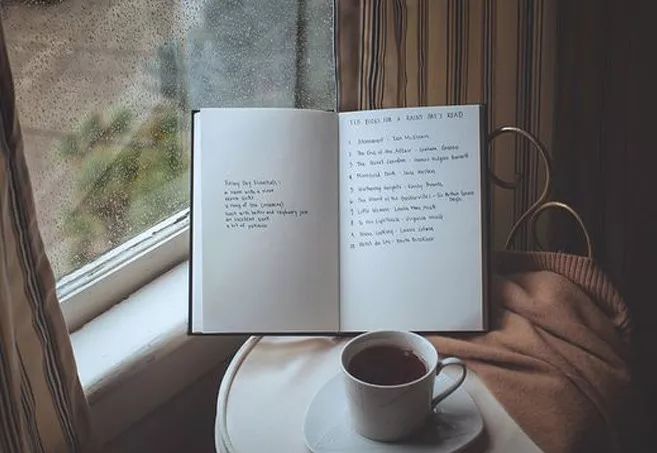 Rainy Day Essentials:
a room with a view
warm socks
a mug of tea (steaming)
toast with butter and raspberry jam
an excellent book
a bit of patience
TEN BOOKS FOR A RAINY DAY'S READ
1. Atonement - Ian McEwan
2. The End of the Affair - Graham Greene
3. The Secret Garden - Frances Hodgson Burnett
4. Mansfield Park - Jane Austen
5. Wuthering Heights - Emily Brontë
6. The Hound of the Baskervilles - Sir Arthur Conan
Doyle
7. Little Women - Louisa May Alcott
8. To the Lighthouse - Virginia Woolf
9. - Laurie Colwin
10. Hotel du Lac - Anita Brookner